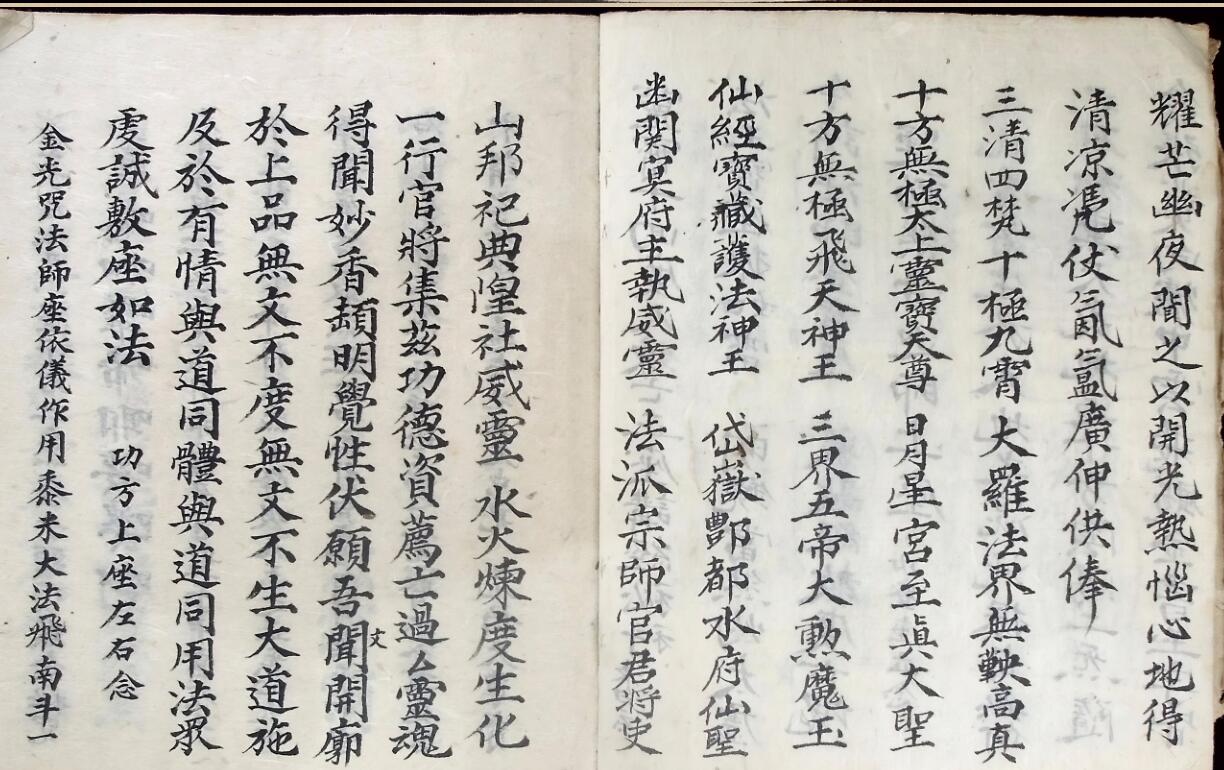 耀芒幽夜間之以開光熱惱心地得
清凉凴仗氤氳廣伸供俸
三清四梵十極九霄 大羅法界無鞅高真
十方無極太上靈寶天尊 日月星宮至真大聖
十方無極飛天神王 三界五帝大勲魔王
仙經寶藏護法神王 岱嶽酆都水府仙聖
幽関冥府主執威靈 法派宗師官君将吏
山邦祀典隍社威靈 水火煉度生化
一行官將集茲功德資薦亡過厶靈魂
得聞妙香頡明覺性伏願吾聞文開廓
於上品無文不度無文不生大道施
及於有情與道同體與道同用法眾
虔誠敷座如法 功方上座左右念
金光咒法師座依儀作用黍米大法飛南斗一